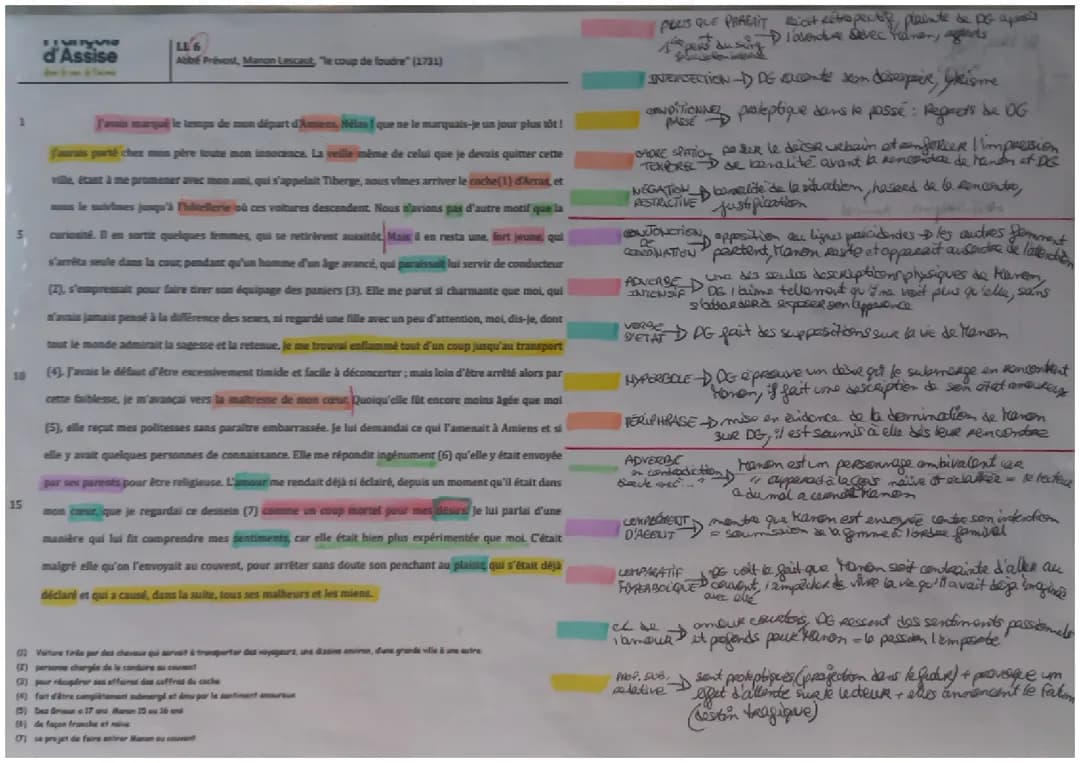 François
d'Assise
LL 6
Abbé Prévost, Manon Lescaut, "le coup de foudre" (1731)
1 J'avais marqué le temps de mon départ d'Amiens. Hélas ! que ne le marquais-je un jour plus tôt !
j'aurais porté chez mon père toute mon innocence. La veille même de celui que je devais quitter cette
ville, étant à me promener avec mon ami, qui s'appelait Tiberge, nous vîmes arriver le coche(1) d'Arras, et
nous le suivîmes jusqu'à l'hôtellerie où ces voitures descendent. Nous n'avions pas d'autre motif que la
5 curiosité. Il en sortit quelques femmes, qui se retirèrent aussitôt. Mais il en resta une, fort jeune, qui
s'arrêta seule dans la cour, pendant qu'un homme d'un âge avancé, qui paraissait lui servir de conducteur
(2), s'empressait pour faire tirer son équipage des paniers (3). Elle me parut si charmante que moi, qui
n'avais jamais pensé à la différence des sexes, ni regardé une fille avec un peu d'attention, moi, dis-je, dont
tout le monde admirait la sagesse et la retenue, je me trouvai enflammé tout d'un coup jusqu'au transport
10 (4). J'avais le défaut d'être excessivement timide et facile à déconcerter ; mais loin d'être arrêté alors par
cette faiblesse, je m'avançai vers la maîtresse de mon cœur. Quoiqu'elle fût encore moins âgée que moi
(5), elle reçut mes politesses sans paraître embarrassée. Je lui demandai ce qui l'amenait à Amiens et si
elle y avait quelques personnes de connaissance. Elle me répondit ingénument (6) qu'elle y était envoyée
par ses parents pour être religieuse. L'amour me rendait déjà si éclairé, depuis un moment qu'il était dans
15 mon cœur, que je regardai ce dessein (7) comme un coup mortel pour mes désirs. Je lui parlai d'une
manière qui lui fit comprendre mes sentiments, car elle était bien plus expérimentée que moi. C'était
malgré elle qu'on l'envoyait au couvent, pour arrêter sans doute son penchant au plaisir, qui s'était déjà
déclaré et qui a causé, dans la suite, tous ses malheurs et les miens.
(1) Voiture tirée par des chevaux qui servait à transporter des voyageurs, une dizaine environ, d'une grande ville à une autre
(2) personne chargée de la conduire au couvent
(3) pour récupérer ses affaires des coffres du coche
(4) fait d'être complètement submergé et ému par le sentiment amoureux
(5) Des Grieux a 17 ans Manon 15 ou 16 ans
(6) de façon franche et naïve
(7) ce projet de faire entrer Manon au couvent
PLUS QUE PARFAIT récit rétrospectif, plainte de DG après
1ère pers du sing l'aventure avec Manon,
INTERJECTION → DG raconte son désespoir, lyrisme
CONDITIONNEL PASSÉ → proleptique dans le passé : Regrets de DG
CADRE SPATIO TEMPOREL → poser le décor urbain et renforcer l'impression
de banalité avant la rencontre de Manon et DG
NÉGATION RESTRICTIVE → banalité de la situation, hasard de la rencontre,
justification
CONJONCTION DE COORDINATION → opposition au lignes précédentes → les autres femmes
partent, Manon reste et apparait au centre de l'attention
ADVERBE INTENSIF → une des seules descriptions physiques de Manon,
DG l'aime tellement qu'il ne voit plus qu'elle, sans
s'attarder à exposer son apparence
VERBE D'ETAT → DG fait des suppositions sur la vie de Manon
HYPERBOLE → DG éprouve un désir qui le submerge en rencontrant
Manon, il fait une description de son état amoureux
PÉRIPHRASE → mise en évidence de la domination de Manon
SUR DG, il est soumis à elle dès leur rencontre
ADVERBE en contradiction avec "..." → Manon est un personnage ambivalent car
apparaît à la fois naïve et = le lecteur
a du mal a cerner Manon
COMPLÉMENT D'AGENT → montre que Manon est envoyée contre son intention
= soumission de la femme à l'ordre familial
COMPARATIF HYPERBOLIQUE → DG voit le fait que Manon soit contrainte d'aller au
couvent, l'empêcher de vivre la vie qu'il avait déjà imaginée
avec elle
CL de l'amour → amour courtois, DG ressent des sentiments passionnels
et profonds pour Manon = la passion l'emporte
PROP. SUB. relative → sont proleptiques (projection dans le futur) + provoque un
effet d'attente sur le lecteur + elles annoncent le
(destin tragique)